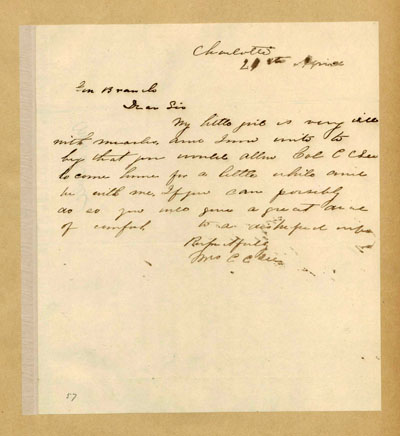 Charlotte
21st April
Gen Branch
Dear Sir
My little girl is very ill
with measles and I now write to
beg that you would allow Col C C Lee
to come home for a little while and
be with me. If you can possibly
do so you will give a great deal
of comfort to a distressed wife
Respectfully
Mrs C C Lee
57